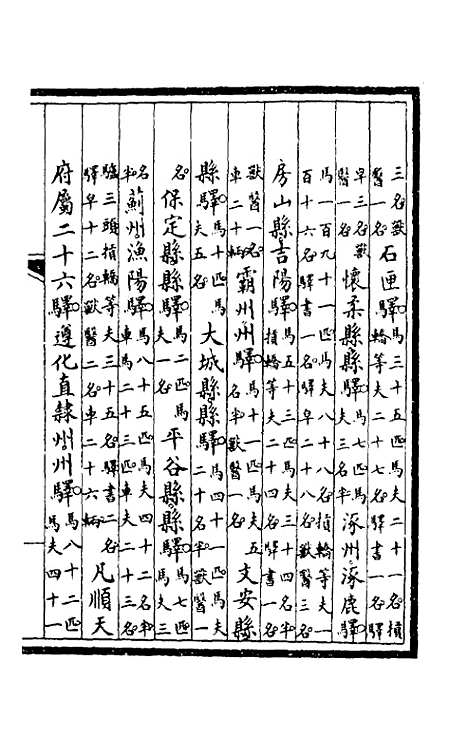 三名獸醫一名石匣驛馬三十五匹馬夫二十一名摃轎等夫二十七名驛書一名驛
皁三名獸醫一名懷柔縣縣驛夫三名半涿州涿鹿驛
馬一百九十一匹馬夫八十八名摃轎等夫一百十六名驛書一名驛皁二十八名獸醫三名
房山縣吉陽驛馬五十三匹馬夫三十四名半摃轎等夫二十四名驛書一名
獸醫一名車二十輛霸州州驛馬十一匹馬夫五名半獸醫一名文安縣
縣驛馬十匹馬夫五名大城縣縣驛馬四十一匹馬夫二十名半獸醫一
名保定縣縣驛馬二匹馬夫一名平谷縣縣驛馬七匹馬夫三
名半薊州漁陽驛馬八十五匹馬夫四十二名半車馬二十三匹車夫二十三名
驢三頭摃轎等夫三十五名驛書二名驛皁十二名獸醫二名車二十六輛凡順天
府屬二十六驛遵化直隸州州驛馬八十二匹馬夫四十一